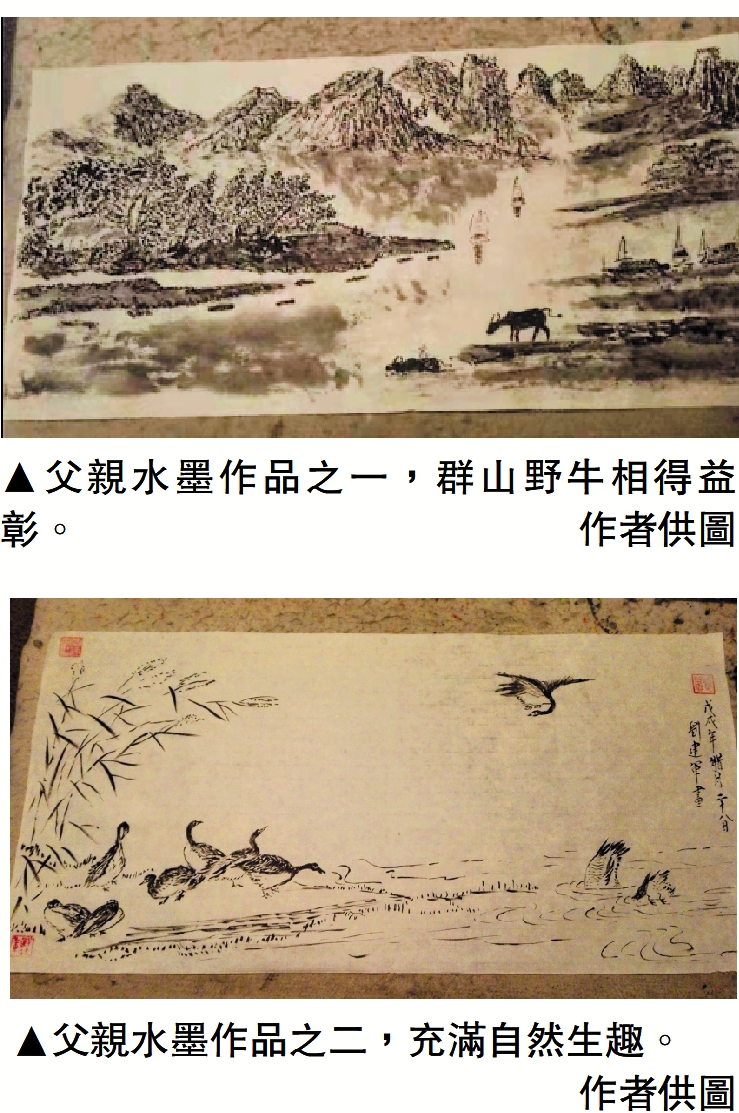 ▲父親水墨作品之一，群山野牛相得益
彰。 作者供圖
戊戌年
劉建軍畫
▲父親水墨作品之二，充滿自然生趣。
作者供圖